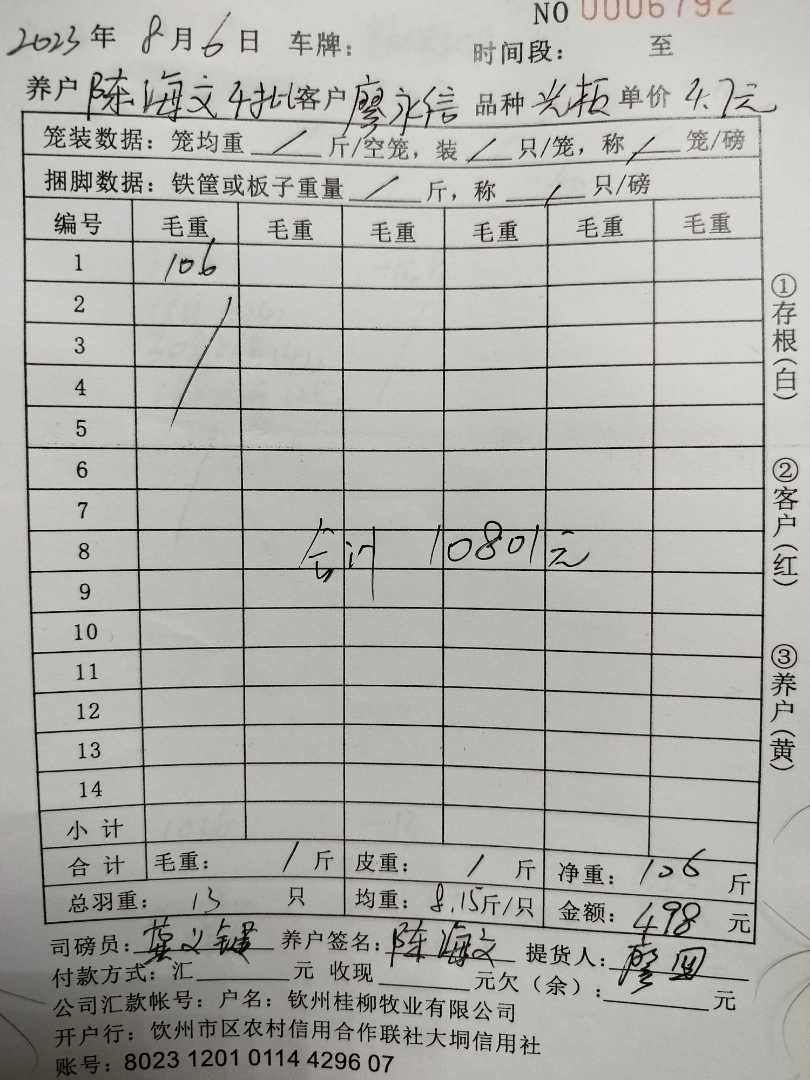 NO 0006792
2023年 8月6日 车牌: 时间段: 至
养户 陈海文 4批 客户 廖永信 品种 单价 4.7元
笼装数据: 笼均重 / 斤/空笼, 装 / 只/笼, 称 / 笼/磅
捆脚数据: 铁筐或板子重量 / 斤, 称 / 只/磅
编号 毛重 毛重 毛重 毛重 毛重 毛重
1 106
2
3
4
5
6
7
8 合计 10801元
9
10
11
12
13
14
小计
合计 毛重: / 斤 皮重: / 斤 净重: 106 斤
总羽重: 13 只 均重: 8.15斤/只 金额: 498 元
司磅员: 养户签名: 陈海文 提货人: 廖
付款方式: 汇 元 收现 元欠(余): 元
公司汇款帐号: 户名: 钦州桂柳牧业有限公司
开户行: 饮州市区农村信用合作联社大垌信用社
账号: 8023 1201 0114 4296 07
①存根(白)
②客户(红)
③养户(黄)